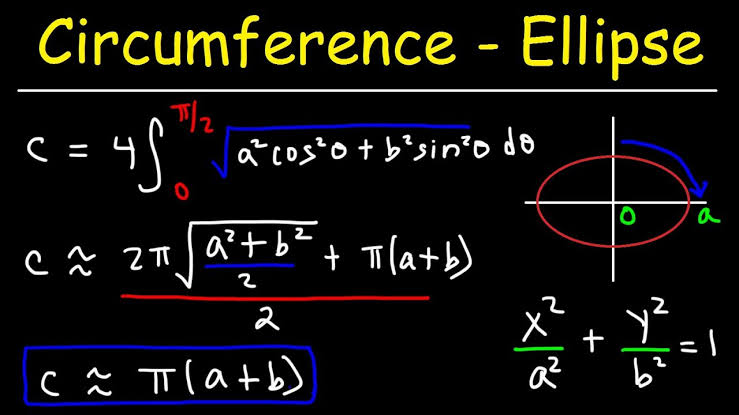 Circumference - Ellipse
c = 4∫₀^π/2 √a²cos²θ + b²sin²θ dθ
0 a
c ≈ (2π√((a²+b²)/2) + π(a+b))/2
x²/a² + y²/b² = 1
c ≈ π(a+b)